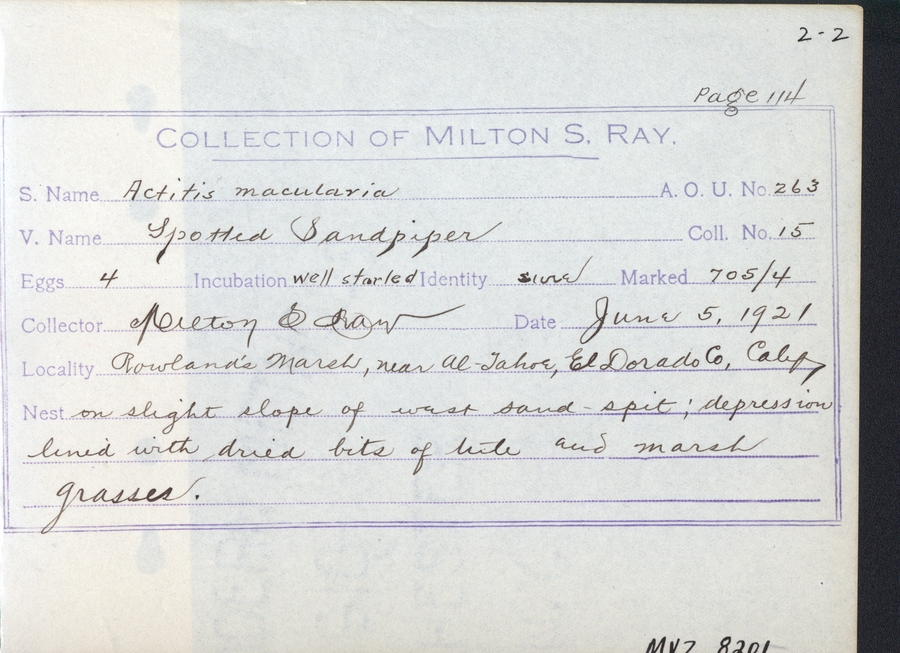 2-2
Page 114
COLLECTION OF MILTON S. RAY.
S. Name Actitis macularia A. O. U. No. 263
V. Name Spotted Sandpiper Coll. No. 15
Eggs 4 Incubation well started Identity sure Marked 705/4
Collector Milton S Ray Date June 5, 1921
Locality Rowland's Marsh, near Al-Tahoe, El Dorado Co, Calif
Nest on slight slope of west sand-spit; depression
lined with dried bits of tule and marsh
grasses.
MVZ 8201